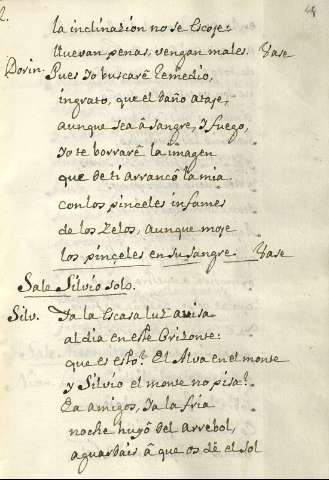 la inclinazion no se escoje:
lluevan penas, vengan males. Vase
Dorin. Pues Yo buscarè Remedio,
ingrato, que el daño ataje,
aunque sea â sangre, Y fuego,
Yo te borrarè la imagen
que de ti arrancò la mia
con los pinceles infames
de los Zelos, aunque moje
los pinçeles en su sangre. Vase
Sale Silvio solo.
Silv. Ya la escasa luz avisa
al dia en este Orizonte:
que es esto? El Alva en el monte
y Silvio el monte no pisa?
Ea amigos, Ya la fria
noche huyô del arrebol,
aguardais â que os dè el sol